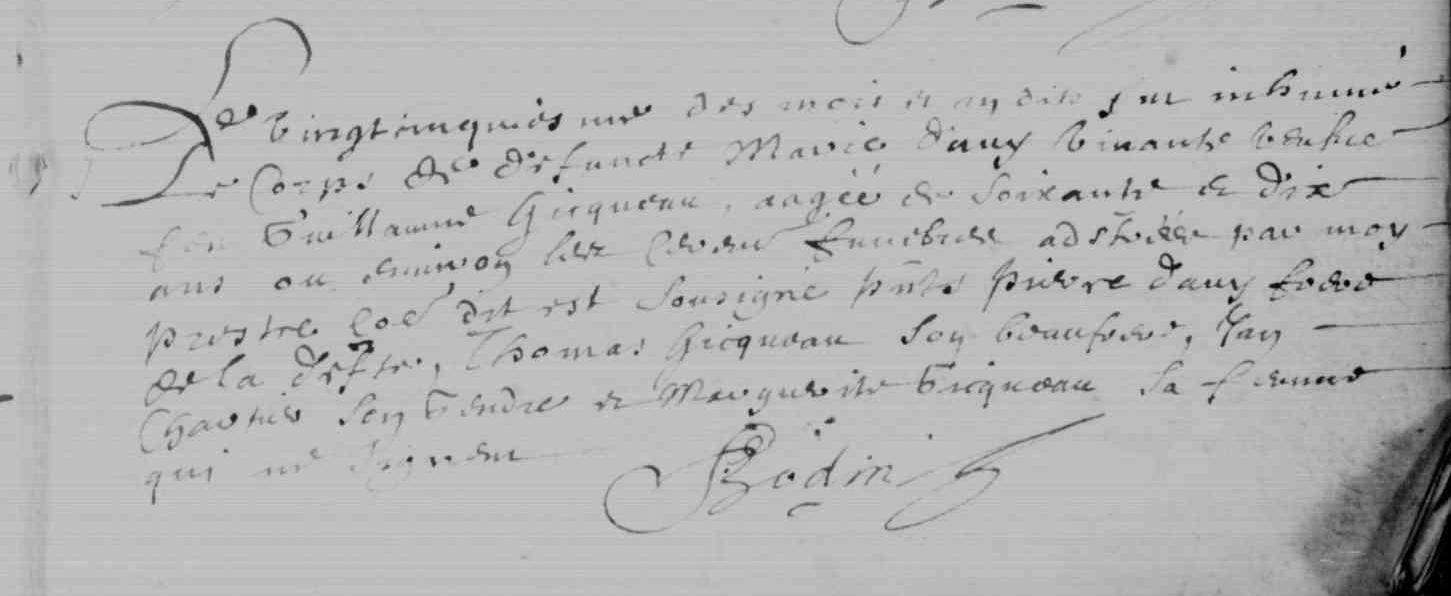 Le vingtcinquiesme des mois et an dits fut inhumé
Le Corps de deffuncte Marie Dauy vivante veufue
feu Guillaume Gicqueau, aagée de soixante et dix
ans ou environ les ceremo funebres adstrées par moy
prestre coe dit est soubsigné pnts Pierre Dauy frere
de la deffte, Thomas Gicqueau son beaufrere, Jan
Chartier son gendre et Marguerite Gicqueau sa femme
qui ne signent
Bodin